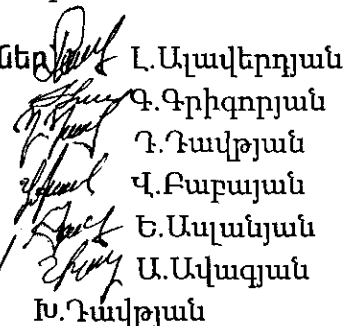 ներ Լ.Ալավերդյան
Գ.Գրիգորյան
Դ.Դավթյան
Վ.Բաբայան
Ե.Ասլանյան
Ա.Ավագյան
Խ.Դավթյան